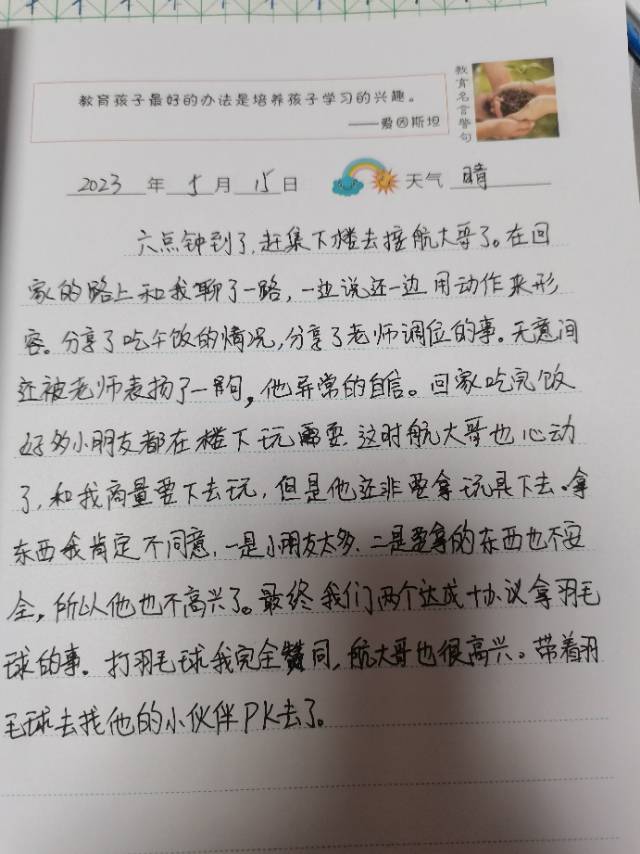 教育孩子最好的办法是培养孩子学习的兴趣。
——爱因斯坦
教育名言警句
2023年5月15日 天气 晴
六点钟到了,赶集下楼去接航大哥了。在回
家的路上和我聊了一路,一边说还一边用动作来形
容。分享了吃午饭的情况,分享了老师调位的事。无意间
还被老师表扬了一句,他异常的自信。回家吃完饭
好多小朋友都在楼下玩耍,这时航大哥也心动
了,和我商量要下去玩,但是他还非要拿玩具下去。拿
东西我肯定不同意,一是小朋友太多,二是要拿的东西也不安
全,所以他也不高兴了。最终我们两个达成协议拿羽毛
球的事。打羽毛球我完全赞同,航大哥也很高兴。带着羽
毛球去找他的小伙伴PK去了。